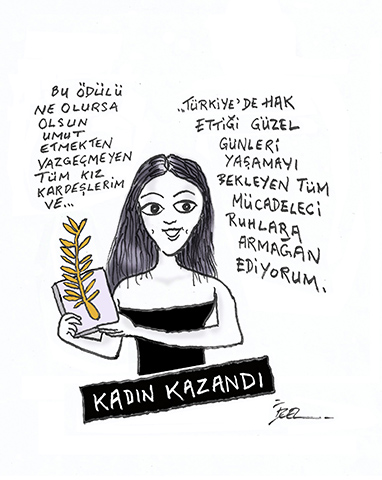 BU ÖDÜLÜ
NE OLURSA
OLSUN
UMUT
ETMEKTEN
VAZGEÇMEYEN
TÜM KIZ
KARDEŞLERİM
VE...
..TÜRKİYE'DE HAK
ETTİĞİ GÜZEL
GÜNLERİ
YAŞAMAYI
BEKLEYEN TÜM
MÜCADELECİ
RUHLARA
ARMAĞAN
EDİYORUM.
KADIN KAZANDI
İZEL